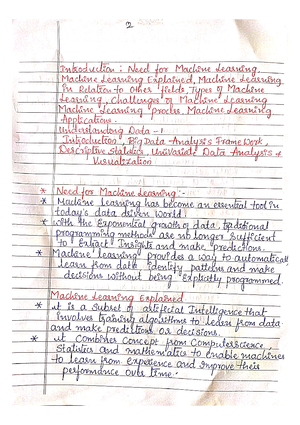 2
Introduction : Need for Machine Learning,
Machine Learning Explained, Machine Learning
in Relation to Other fields, Types of Machine
Learning, Challenges of Machine Learning
Machine Learning process, Machine Learning
Applications.
Understanding Data - 1
Introduction, Big Data Analysis Frame Work,
Descriptive Statistics, Univariate Data Analysis &
Visualization
* Need for Machine Learning :-
* Machine Learning has become an essential tool in
today's data driven World.
* With the Exponential growth of data, traditional
programming methods are no longer Sufficient
to Extract Insights and make predictions.
* Machine learning provides a way to automatically
learn from data, identify patterns and make
decisions without being Explicitly programmed
Machine Learning Explained
* it is a Subset of artificial Intelligence that
involves training algorithms to learn from data
and make predictions or decisions.
* it Combines Concept from Computer Science,
Statistics and mathematics to enable machines
to learn from Experience and Improve their
performance over time.